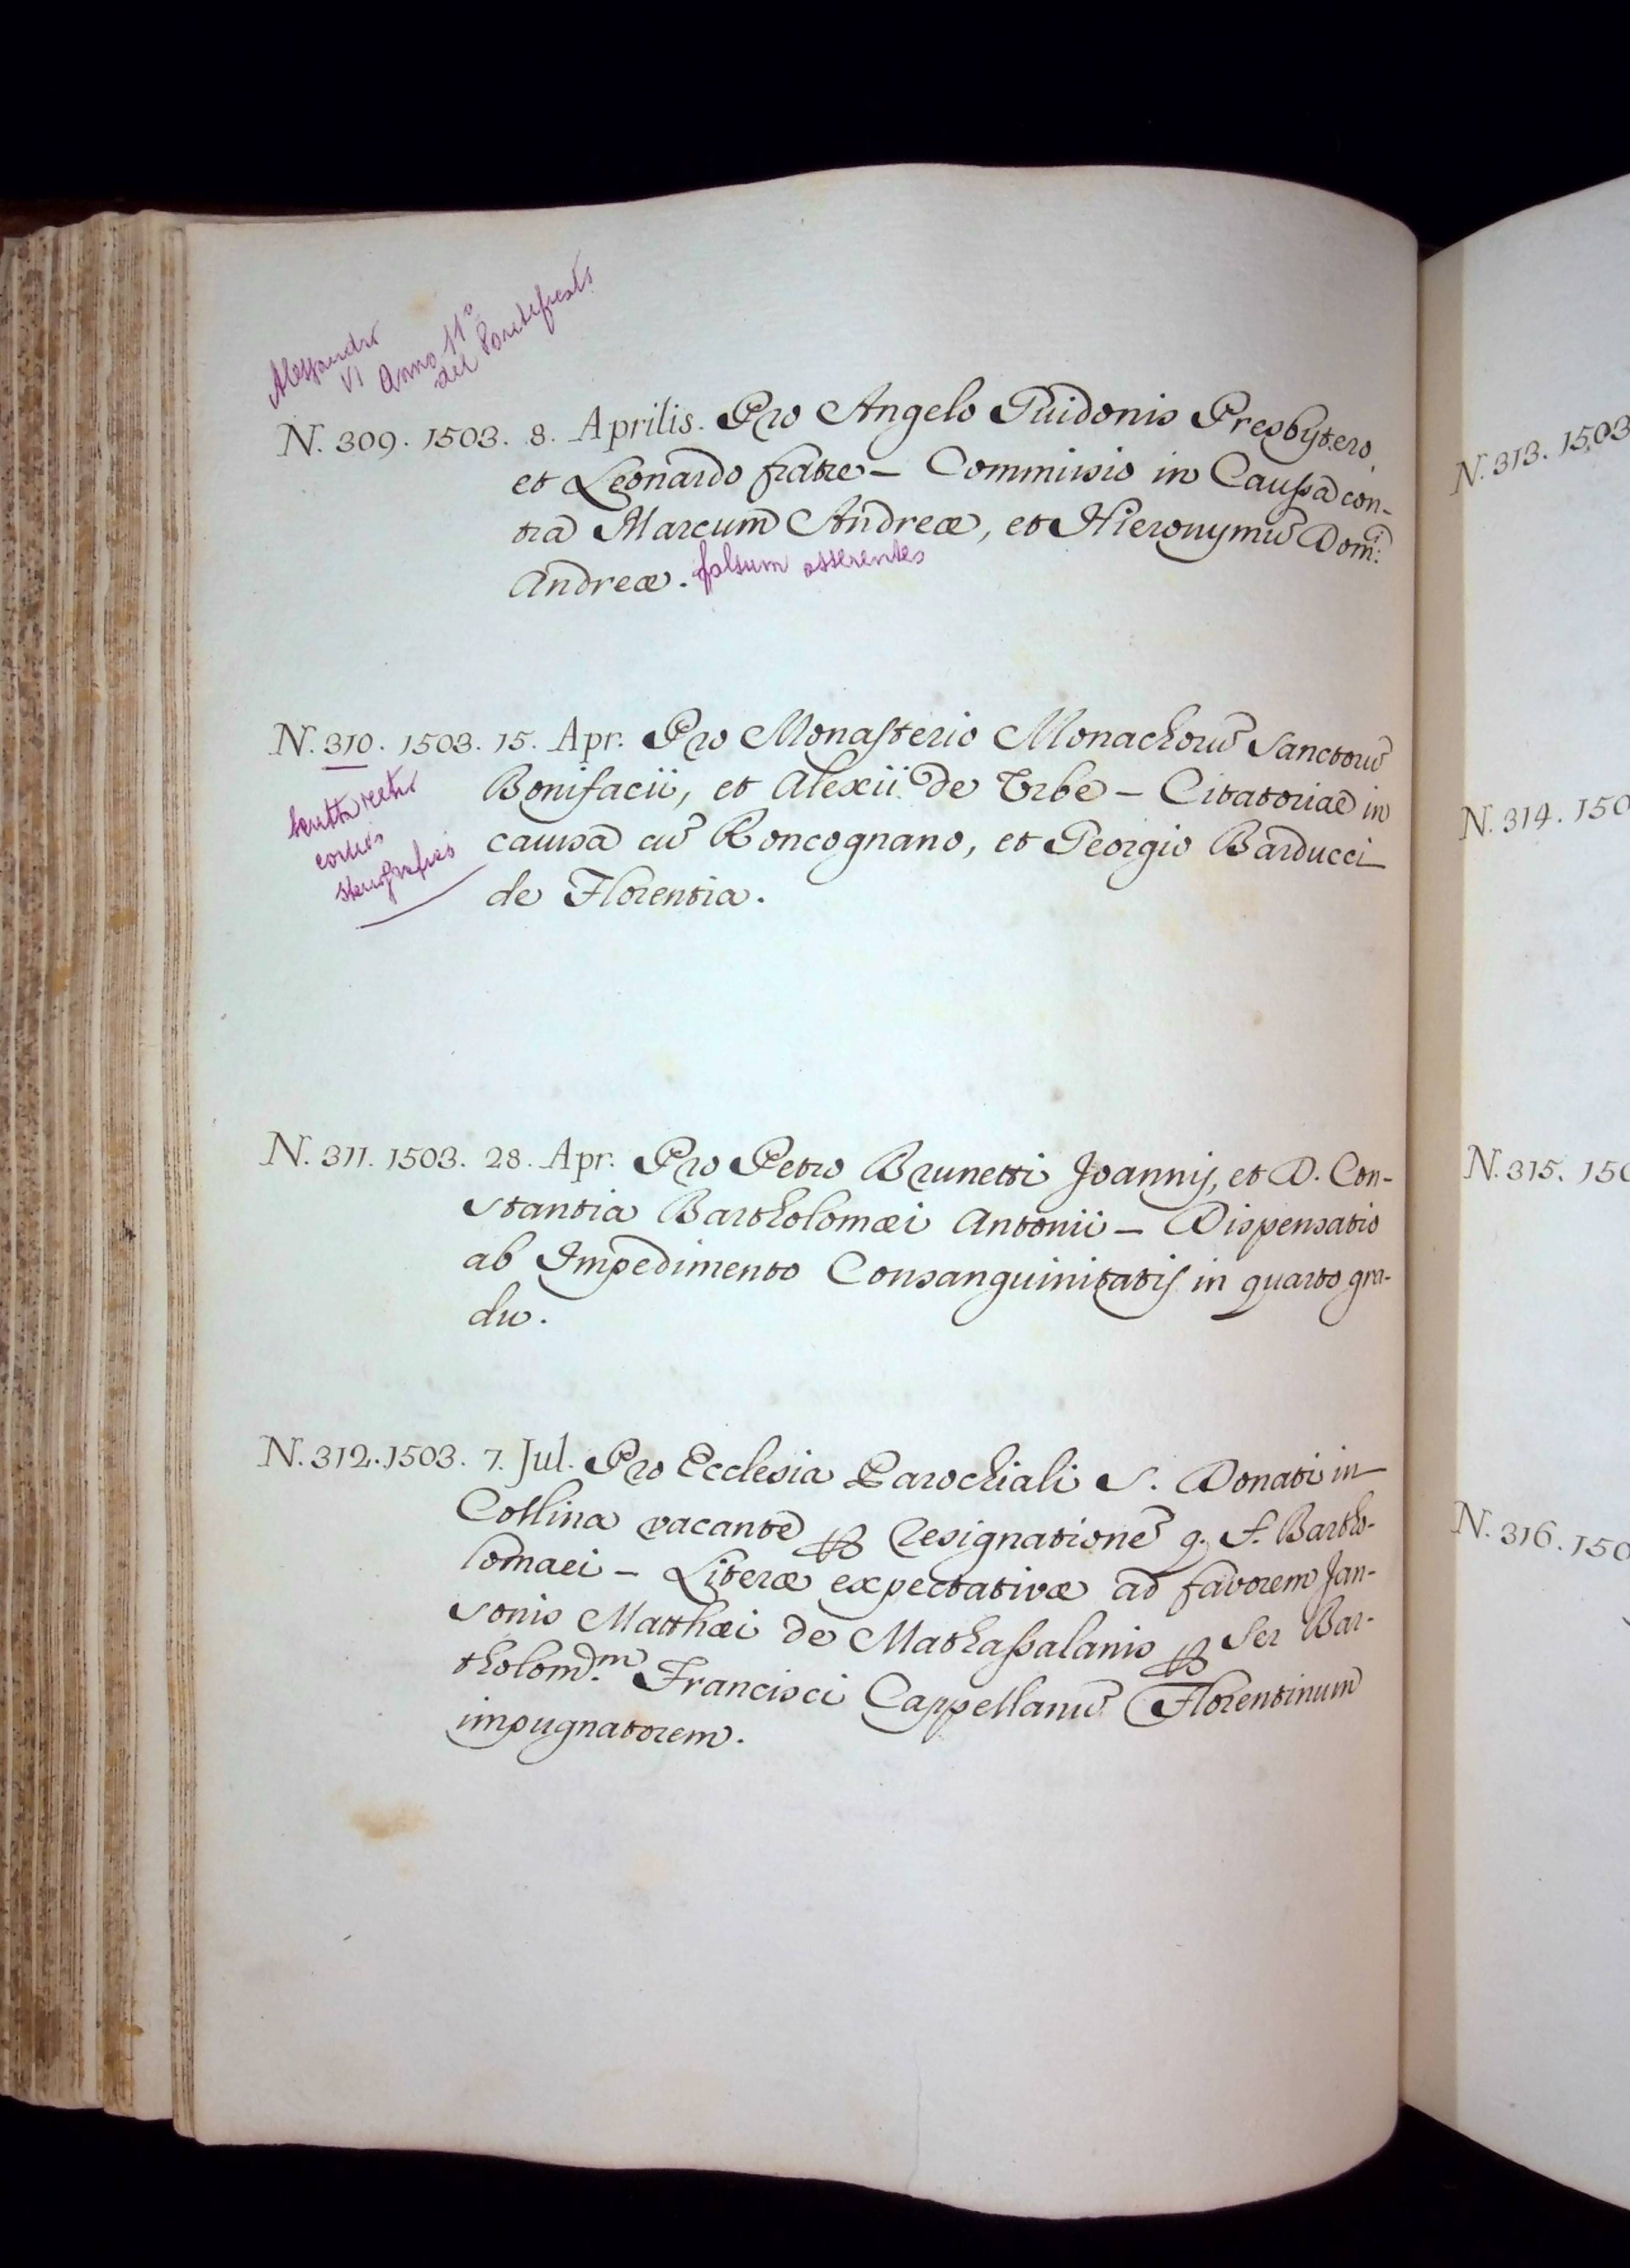 Alessandro
VI Anno 11º
del Pontificato
N. 309. 1503. 8. Aprilis. Pro Angelo Guidonis Presbytero
et Leonardo fratre – Commissio in Caußa con-
tra Marcum Andreæ, et Hieronymū Domⁱ:
Andreæ. falsum asserentes
N. 310. 1503. 15. Apr. Pro Monasterio Monachorū Sanctorū
Bonifacii, et Alexii de Urbe – Citatoriae in
causa cū Roncognano, et Georgio Barducci
de Florentia.
N. 311. 1503. 28. Apr. Pro Petro Brunetti Joannis, et D. Con-
stantia Bartholomæi Antonii – Dispensatio
ab Impedimento Consanguinitatis in quarto gra-
du.
N. 312. 1503. 7. Jul. Pro Ecclesia Parochiali S. Donati in
Collina vacante ꝑ Resignationē q. S. Bartho-
lomaei – Literæ expectativæ ad favorem Jan-
sonis Matthæi de Mathaßalanis ꝑ Ser Bar-
tholomᵐ. Francisci Cappellanū Florentinum
impugnatorem.
N. 313. 1503
N. 314. 150
N. 315. 150
N. 316. 150